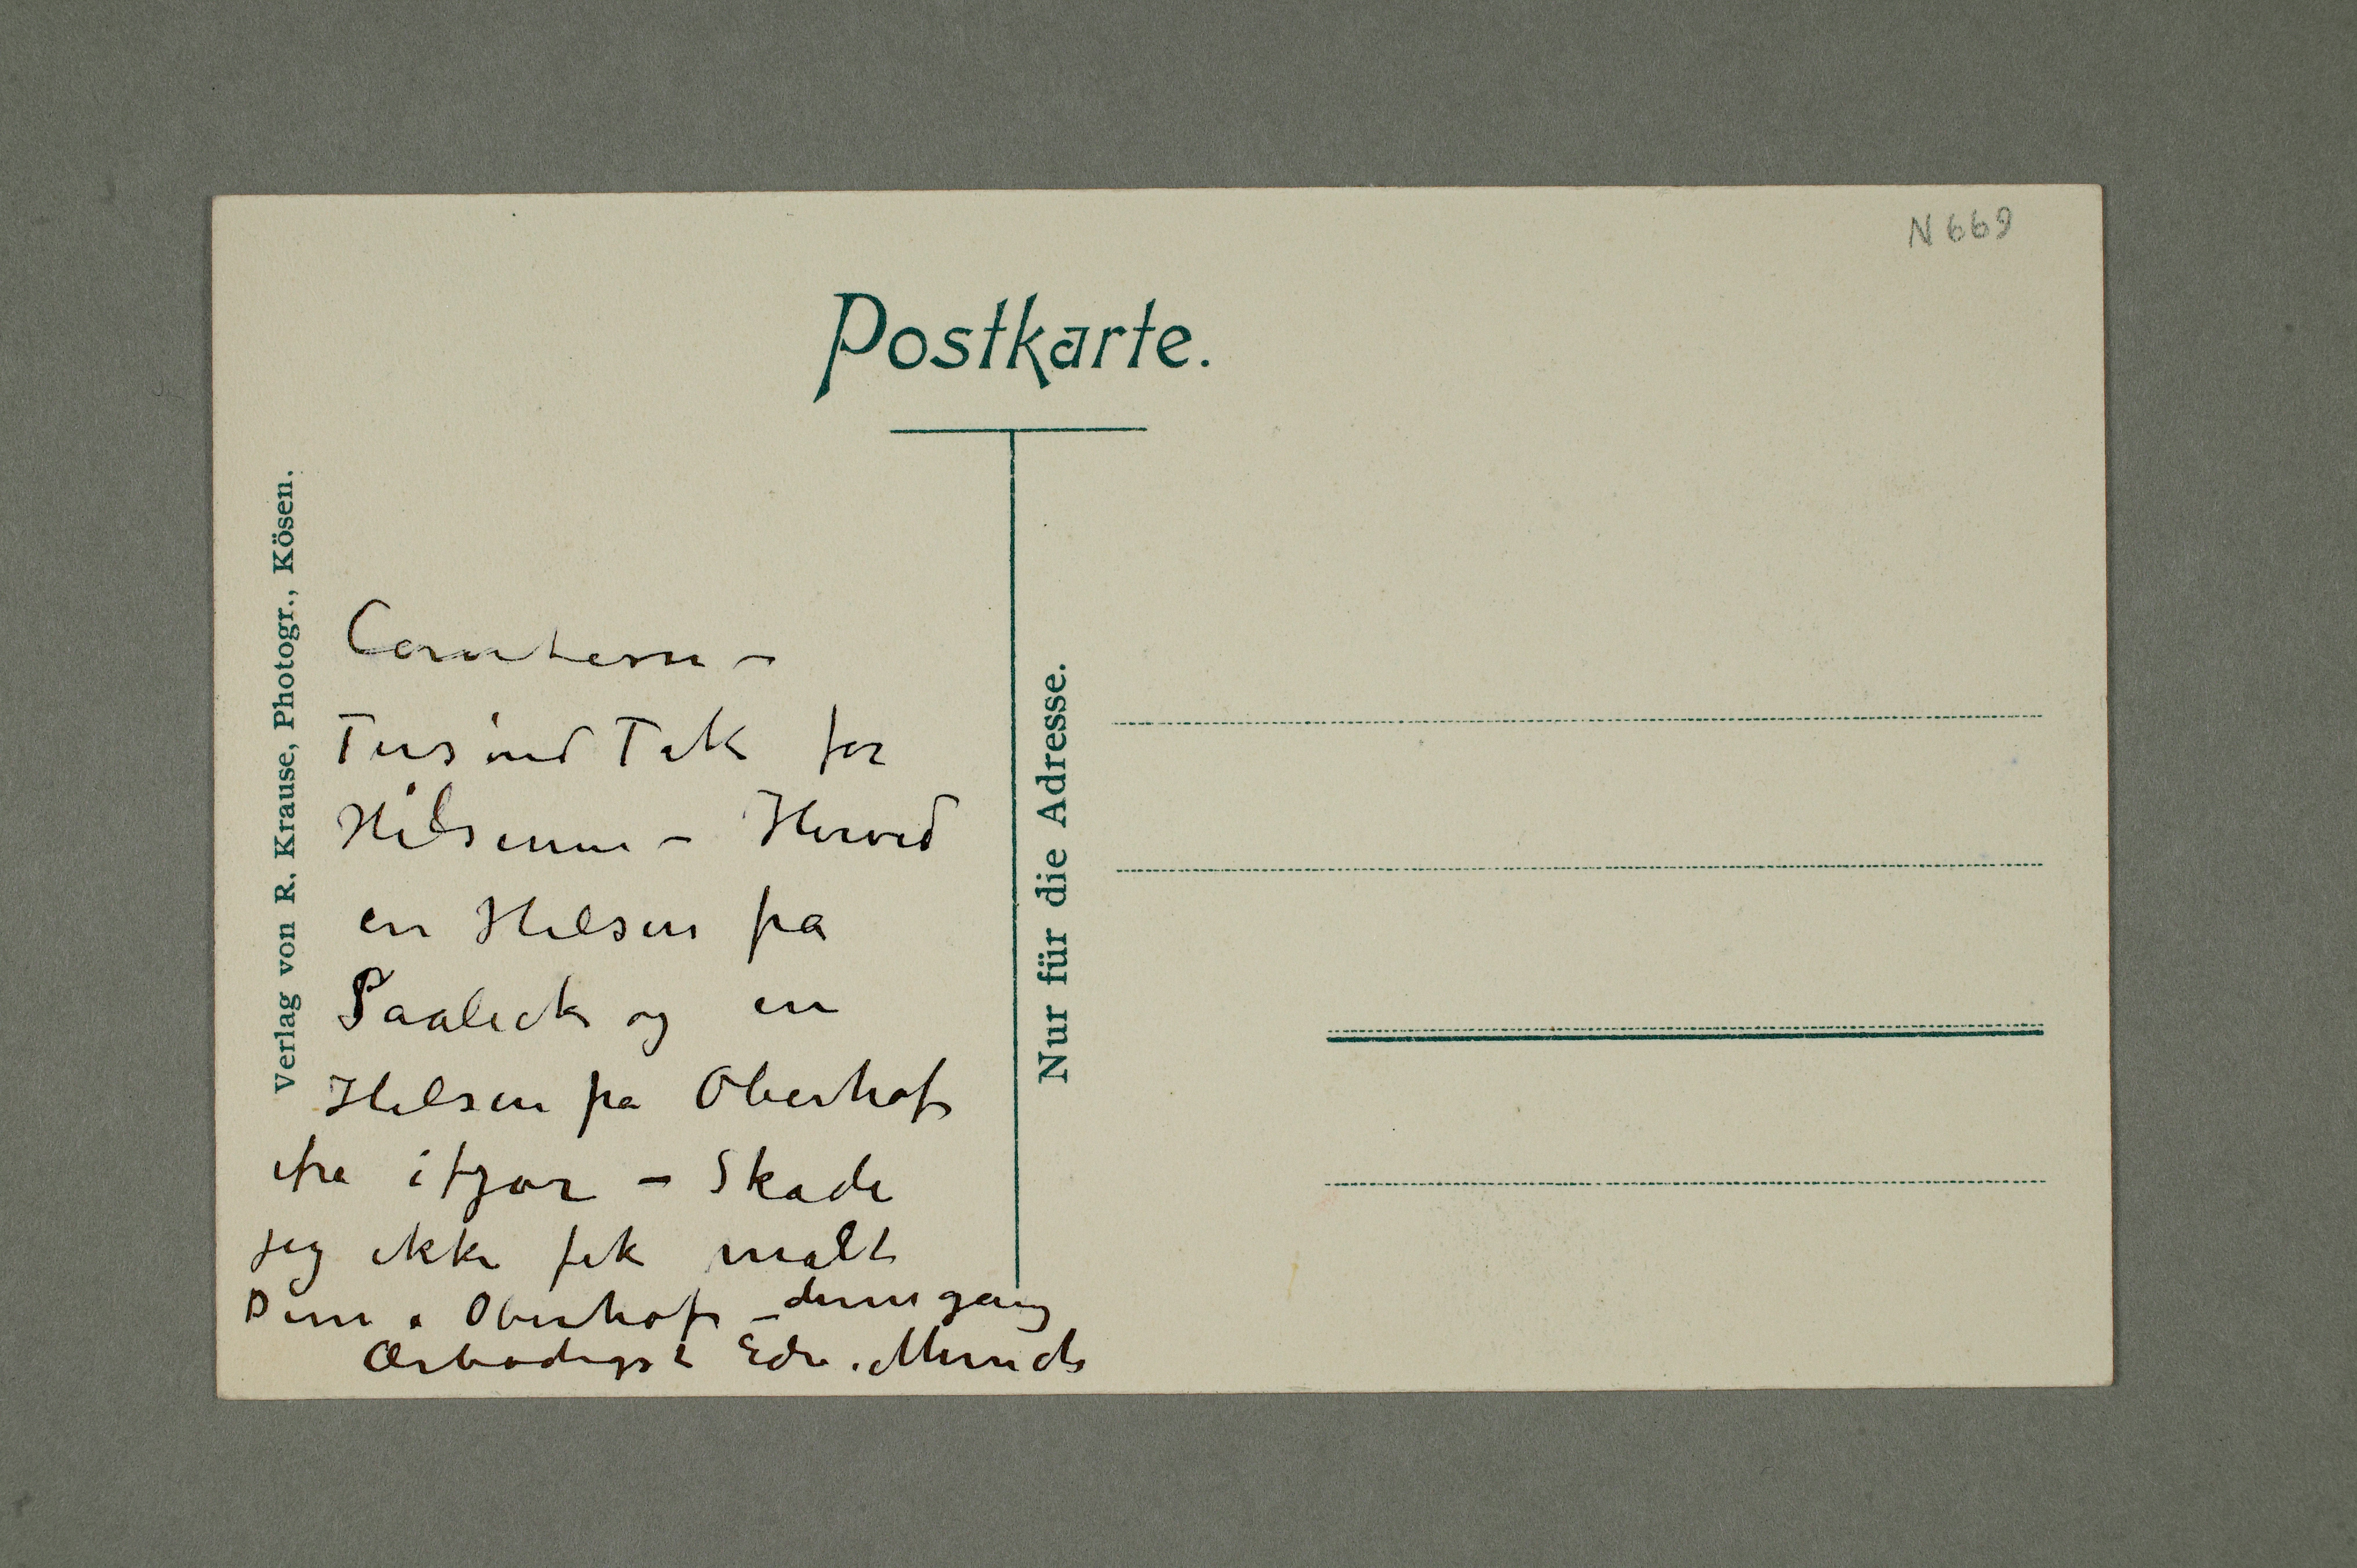 N 669
Postkarte.
Verlag von R. Krause, Photogr., Kösen.
Nur für die Adresse.
Comtesse –
Tusind Tak for
Hilsenen – Herved
en Hilsen fra
Saaleck og en
Hilsen fra Oberhof
ifra ifjor – Skade
jeg ikke fik malt
Dem i Oberhof – dennegang
Ærbødigst Edv. Munch